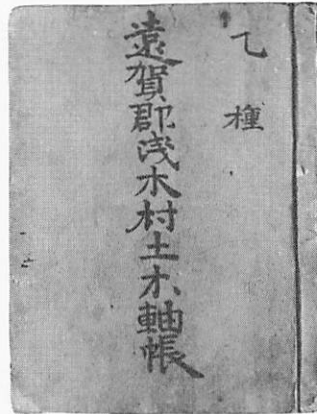 乙種
遠賀郡浅木村土木軸帳